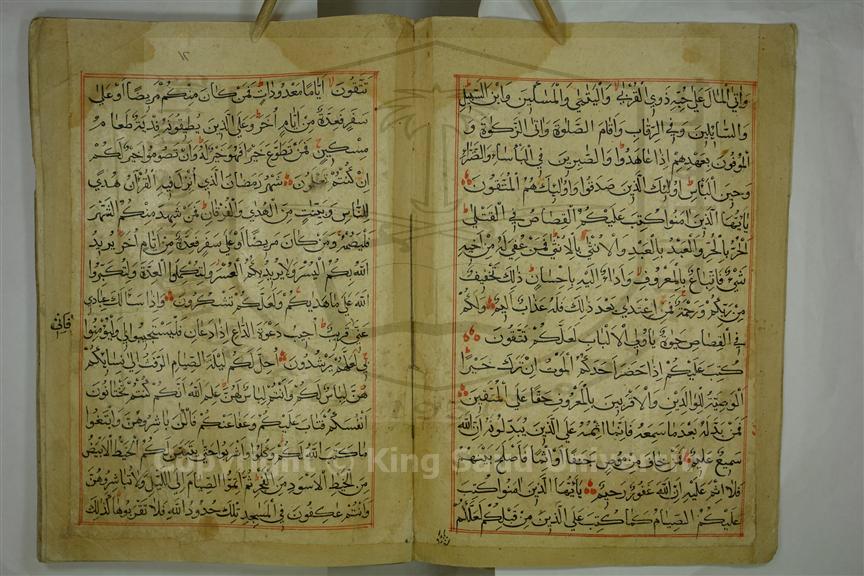 واتي المال علي حبه ذوي القربي واليتمي والمسكين وابن السبيل
والسائلين وفي الرقاب واقام الصلوة واتي الزكوة و
الموفون بعهدهم اذا عاهدوا والصبرين في الباساء والضراء
وحين الباس اولئك الذين صدقوا واولئك هم المتقون
يايها الذين امنوا كتب عليكم القصاص في القتلي
الحر بالحر والعبد بالعبد والانثي بالانثي فمن عفي له من اخيه
شيء فاتباع بالمعروف واداء اليه باحسان ذلك تخفيف
من ربكم ورحمة فمن اعتدي بعد ذلك فله عذاب اليم ولكم
في القصاص حيوة ياولي الالباب لعلكم تتقون
كتب عليكم اذا حضر احدكم الموت ان ترك خيرا
الوصية للوالدين والاقربين بالمعروف حقا علي المتقين
فمن بدله بعد ما سمعه فانما اثمه علي الذين يبدلونه ان الله
سميع عليم فمن خاف من موص جنفا او اثما فاصلح بينهم
فلا اثم عليه ان الله غفور رحيم يايها الذين امنوا كتب
عليكم الصيام كما كتب علي الذين من قبلكم لعلكم
١٢
تتقون اياما معدودات فمن كان منكم مريضا او علي
سفر فعدة من ايام اخر وعلي الذين يطيقونه فدية طعام
مسكين فمن تطوع خيرا فهو خير له وان تصوموا خير لكم
ان كنتم تعلمون شهر رمضان الذي انزل فيه القران هدي
للناس وبينت من الهدي والفرقان فمن شهد منكم الشهر
فليصمه ومن كان مريضا او علي سفر فعدة من ايام اخر يريد
الله بكم اليسر ولا يريد بكم العسر ولتكملوا العدة ولتكبروا
الله علي ما هديكم ولعلكم تشكرون واذا سالك عبادي
عني قريب اجيب دعوة الداع اذا دعان فليستجيبوا لي وليؤمنوا
فاني
بي لعلهم يرشدون احل لكم ليلة الصيام الرفث الي نسائكم
هن لباس لكم وانتم لباس لهن علم الله انكم كنتم تختانون
انفسكم فتاب عليكم وعفا عنكم فالئن باشروهن وابتغوا
ما كتب الله لكم وكلوا واشربوا حتي يتبين لكم الخيط الابيض
من الخيط الاسود من الفجر ثم اتموا الصيام الي الليل ولا تباشروهن
وانتم عكفون في المسجد تلك حدود الله فلا تقربوها كذلك
Copyright © King Saud University